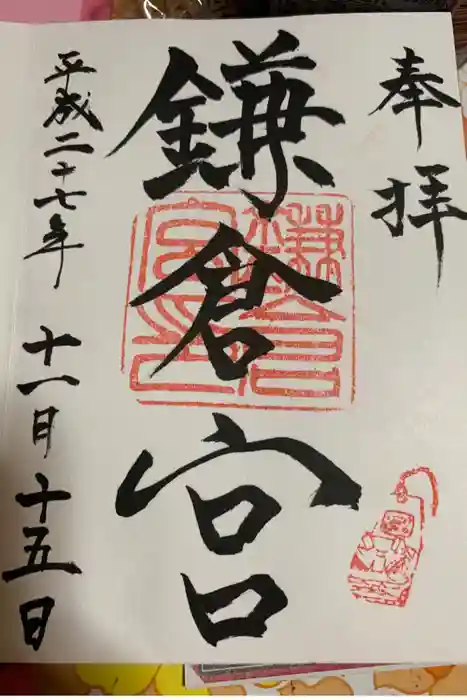 奉拝
鎌倉宮
平成二十七年 十一月 十五日